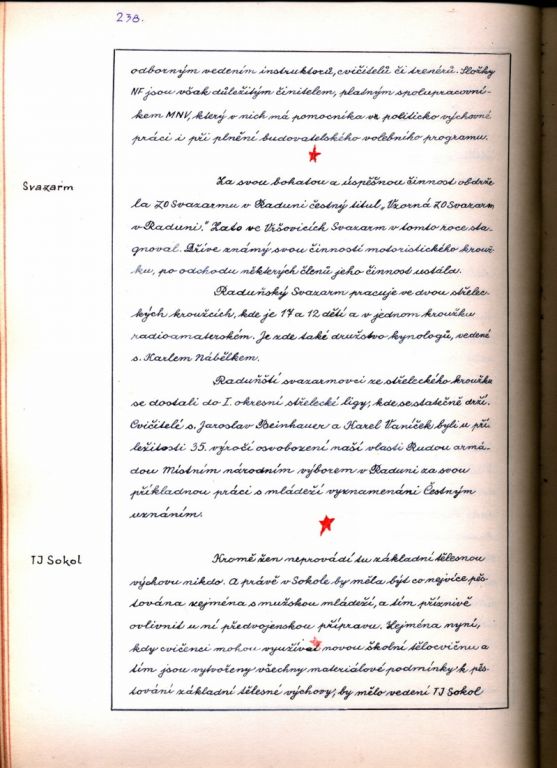 238.
odborným vedením instruktorů, cvičitelů či trenérů. Složky
NF jsou však důležitým činitelem, platným spolupracovní-
kem MNV, který v nich má pomocníka ve politicko výchovné
práci i při plnění budovatelského volebního programu.
Svazarm
Za svou bohatou a úspěšnou činnost obdrže
la ZO Svazarmu v Raduni čestný titul „Vzorná ZO Svazarm
v Raduni." Zato ve Vršovicích Svazarm v tomto roce sta-
gnoval. Dříve známý svou činností motoristického krouž-
ku, po odchodu některých členů jeho činnost ustála.
Raduňský Svazarm pracuje ve dvou střelec-
kých kroužcích, kde je 17 a 12 dětí a v jednom kroužku
radioamaterském. Je zde také družstvo kynologů, vedené
s. Karlem Nábělkem.
Raduňští svazarmovci ze střeleckého kroužku
se dostali do I. okresní střelecké ligy, kde se statečně drží.
Cvičitelé s. Jaroslav Beinhauer a Karel Vaníček byli u pří
ležitosti 35. výročí osvobození naší vlasti Rudou armá-
dou Místním národním výborem v Raduni za svou
příkladnou práci s mládeží vyznamenáni Čestným
uznáním.
TJ Sokol
Kromě žen neprovádí tu základní tělesnou
výchovu nikdo. A právě v Sokole by měla být co nejvíce pěs-
tována zejména s mužskou mládeží, a tím příznivě
ovlivnit u ní předvojenskou přípravu. Zejména nyní,
kdy cvičenci mohou využívat novou školní tělocvičnu a
tím jsou vytvořeny všechny materiálové podmínky k pěs-
tování základní tělesné výchovy, by mělo vedení TJ Sokol